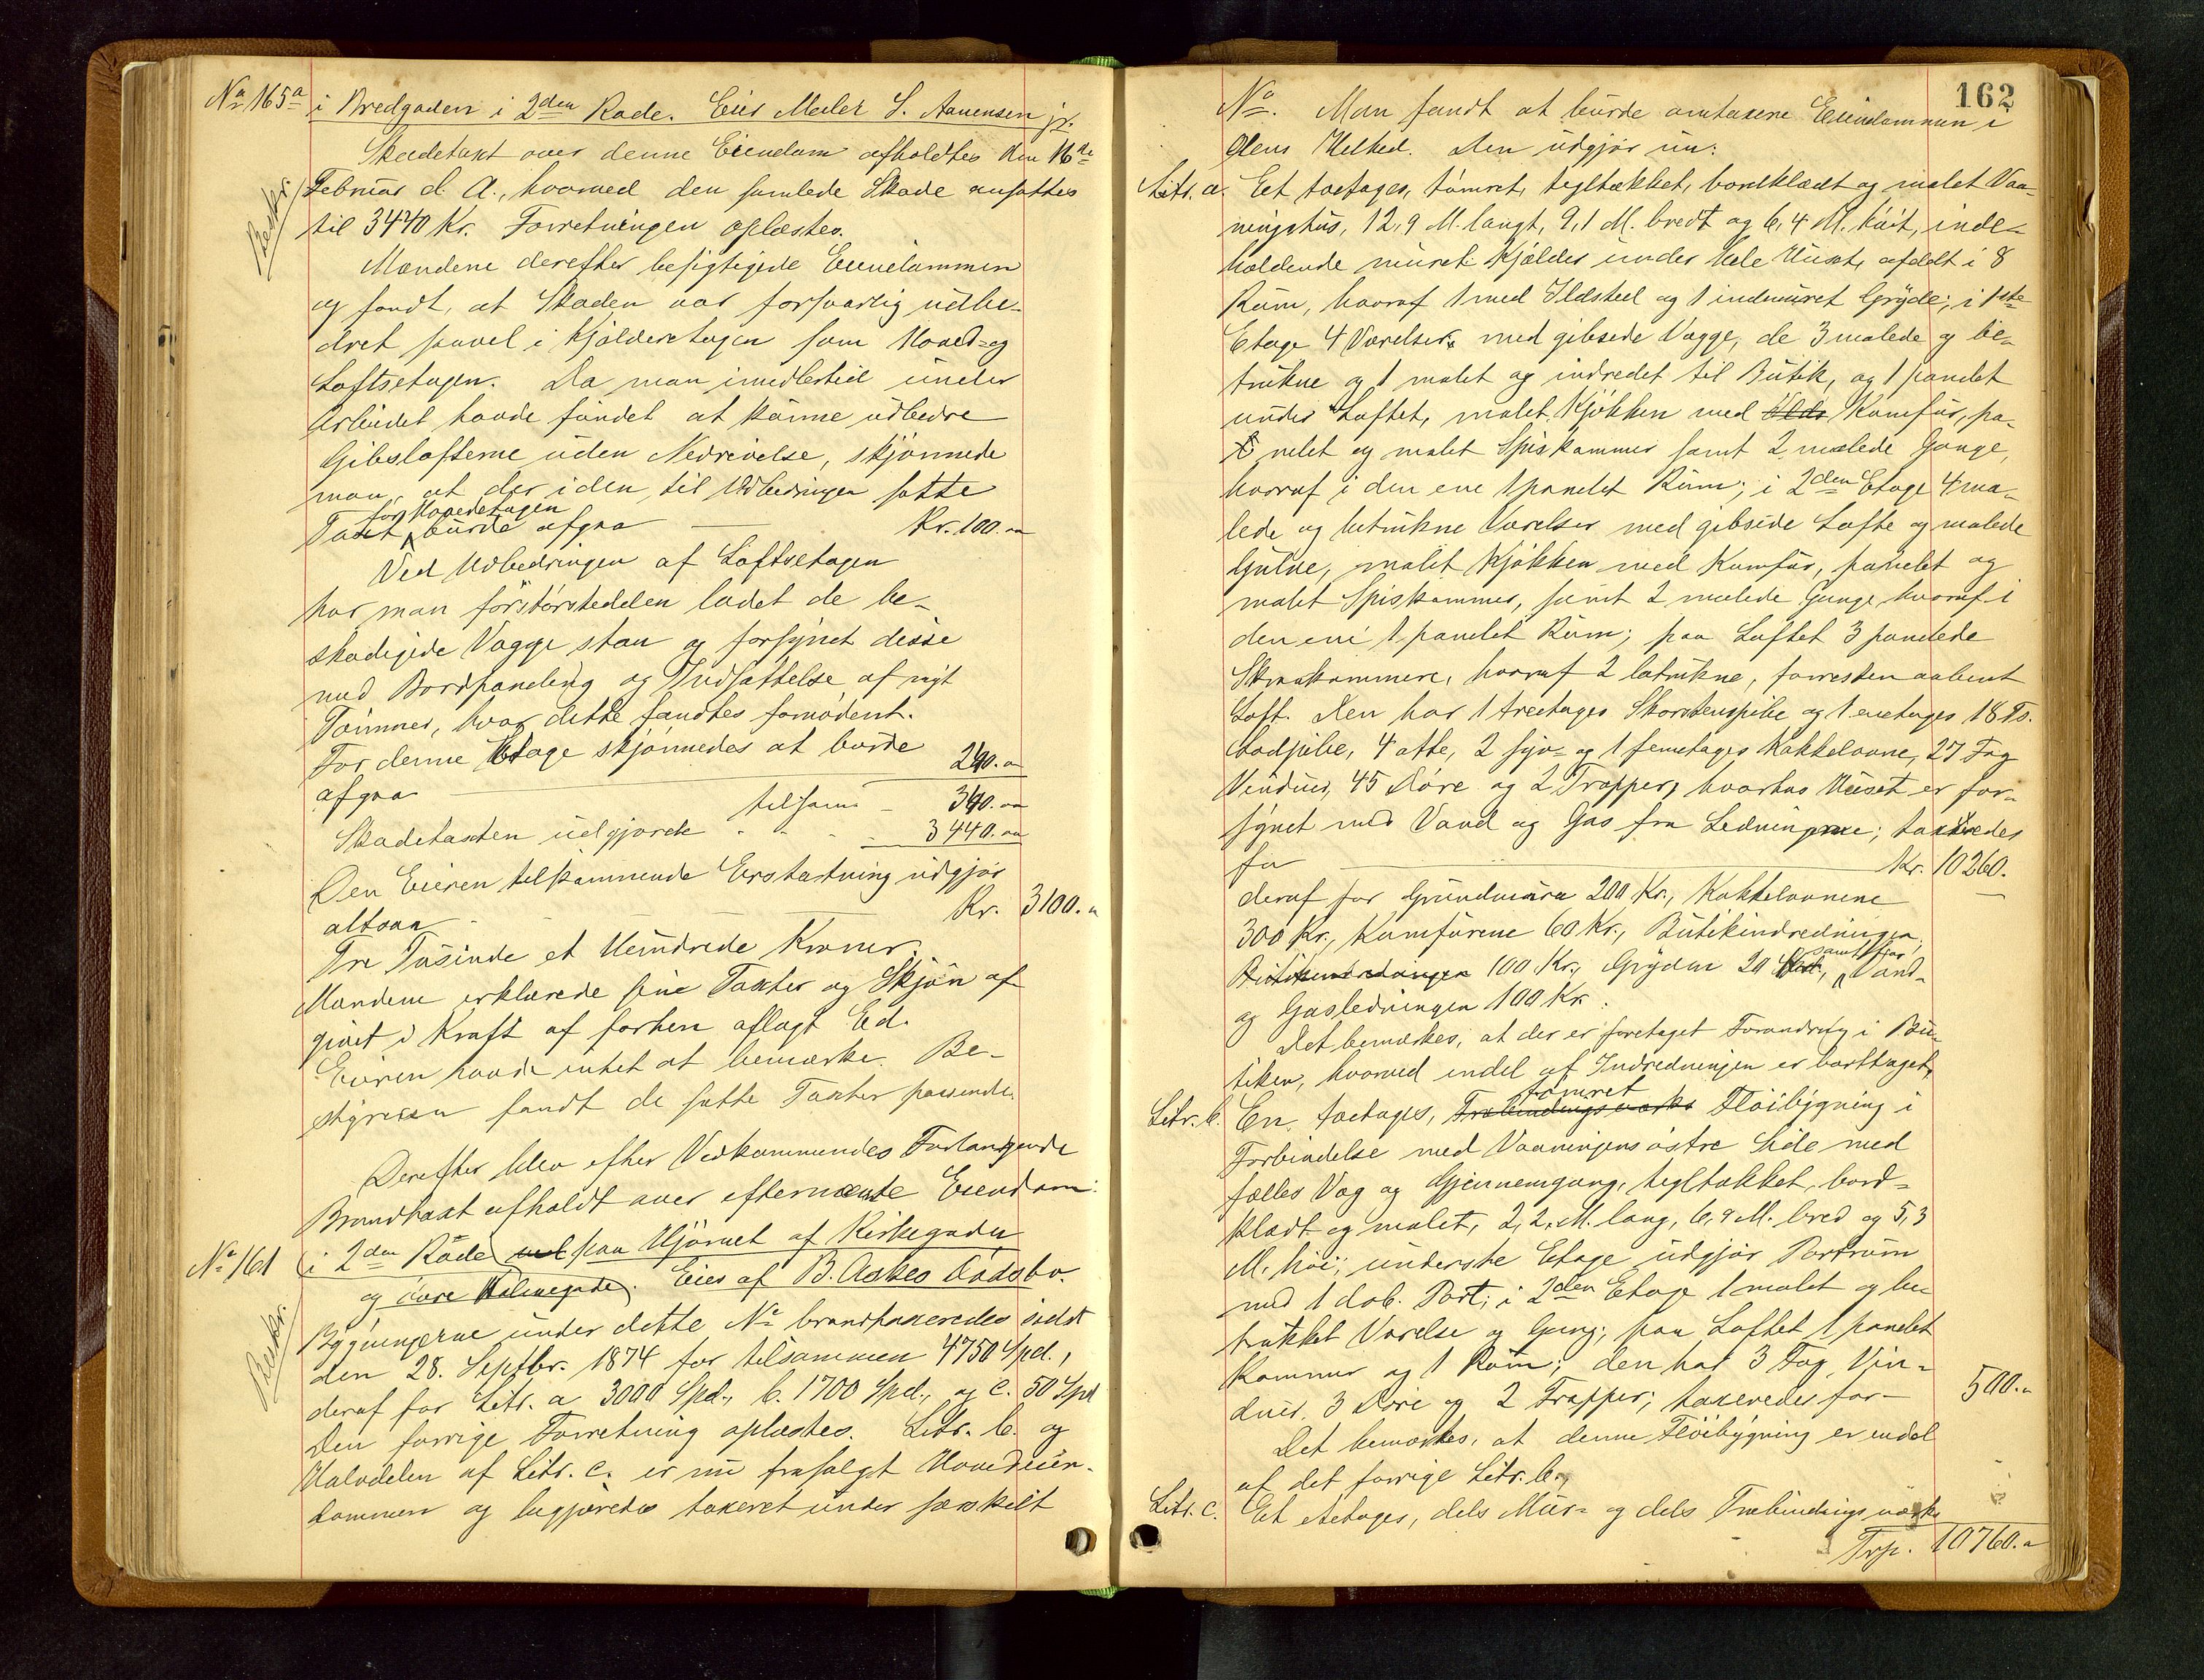 No 165a i Bredgaden i 2den Rode. Eies Maler S. Aanensen jr.
Skadetaxt over denne Eiendom afholdtes den 16de
Februar d. A., hvorved den samlede Skade ansattes
til 3440 Kr. Forretningen oplæstes.
Mændene derefter besigtigede Eiendommen
og fandt, at Skaden var forsvarlig udbe-
dret saavel i Kjælderetagen som Hoved- og
Loftsetagen. Da man imidlertid under
Arbeidet havde fundet at kunne udbedre
Gibslofterne uden Nedrivelse, skjønnede
man, at der i den til Udbedringen satte
for Hovedetagen
Taxt burde afgaa — Kr. 100.
Ved Udbedringen af Loftsetagen
har man for størstedelen ladet de be-
skadigede Vægge staa og forsynet disse
med Bordpaneling og Indsættelse af nyt
Tømmer, hvor dette fandtes fornødent.
For denne Etage skjønnedes at burde
afgaa — 240.
tilsam — 340.
Skadetaxten udgjorde - - - 3440.
Den Eieren tilkommende Erstatning udgjør
altsaa — Kr. 3100.
Tre Tusinde et Hundrede Kroner.
Mændene erklærede sine Taxter og Skjøn af-
givet i Kraft af forhen aflagt Ed.
Eieren havde intet at bemærke. Be-
styrelsen fandt de satte Taxter passende.
Derefter blev efter Vedkommendes Forlangende
Brandtaxt afholdt over efternævnte Eiendom:
No 161 i 2den Rode ved paa Hjørnet af Kirkegaden
og øvre Holmegade. Eies af B. Askes Dødsbo.
Bygningerne under dette No brandtaxeredes sidst
den 28. Septbr. 1874 for tilsammen 4750 Spd.,
deraf for Litr. a 3000 Spd., b. 1700 Spd., og c. 50 Spd
Den forrige Forretning oplæstes. Litr. b. og
Halvdelen af Litr. c. er nu frasolgt Hovedeien-
dommen og begjæredes taxeret under særskilt
162
No. Man fandt at burde omtaxere Eiendommen i
dens Helhed. Den udgjør nu:
Litr. a. Et toetages, tømret, tegltækket, bordklædt og malet Vaa-
ningshus, 12,9 M. langt, 9,1 M. bredt og 6,4 M. høit, inde-
holdende muret Kjælder under hele Huset, afdelt i 8
Rum, hvoraf 1 med Ildsted og 1 indmuret Gryde; i 1ste
Etage 4 Værelser med gibsede Vægge, de 3 malede og be-
trukne og 1 malet og indredet til Butik, og 1 panelet
under Loftet, malet Kjøkken med Komfur, pa-
nelet og malet Spiskammer samt 2 malede Gange,
hvoraf i den ene 1 panelet Rum; i 2den Etage 4 ma-
lede og betrukne Værelser med gibsede Lofte og malede
Gulve, malet Kjøkken med Komfur, panelet og
malet Spiskammer, samt 2 malede Gange hvoraf i
den ene 1 panelet Rum; paa Loftet 3 panelede
Skraakammere, hvoraf 2 betrukne, forresten aabent
Loft. Den har 1 treetages Skorstenspibe og 1 enetages 18 Ts.
Rodpibe, 4 otte, 2 syv- og 1 femetages Kakkelovne, 27 Fag
Vinduer, 45 Døre og 2 Trapper, hvorhos Huset er for-
synet med Vand og Gas fra Ledningerne; taxeredes
for — Kr. 10260.
deraf for Grundmure 200 Kr., Kakkelovnene
300 Kr., Komfurene 60 Kr., Butikindredningen,
Butikindredningen 100 Kr., Gryden 20 Kr., samt for Vand-
og Gasledningen 100 Kr.
Det bemærkes, at der er foretaget Forandring i Bu-
tiken, hvorved endel af Indredningen er borttaget.
tømret
Litr. b. En toetages, Træbindingsværks Fløibygning i
Forbindelse med Vaaningens østre Side med
fælles Væg og Gjennemgang, tegltækket, bord-
klædt og malet, 2,2 M. lang, 6,9 M. bred og 5,3
M. høi; underste Etage udgjør Portrum
med 1 dob. Port; i 2den Etage 1 malet og be-
trukket Værelse og Gang; paa Loftet 1 panelet
Kammer og 1 Rum; den har 3 Fag Vin-
duer, 3 Døre og 2 Trapper; taxeredes for — 500.
Det bemærkes, at denne Fløibygning er endel
af det forrige Litr. b.
Litr. c. Et etetages, dels Mur- og dels Træbindingsværks
Trp. 10760.